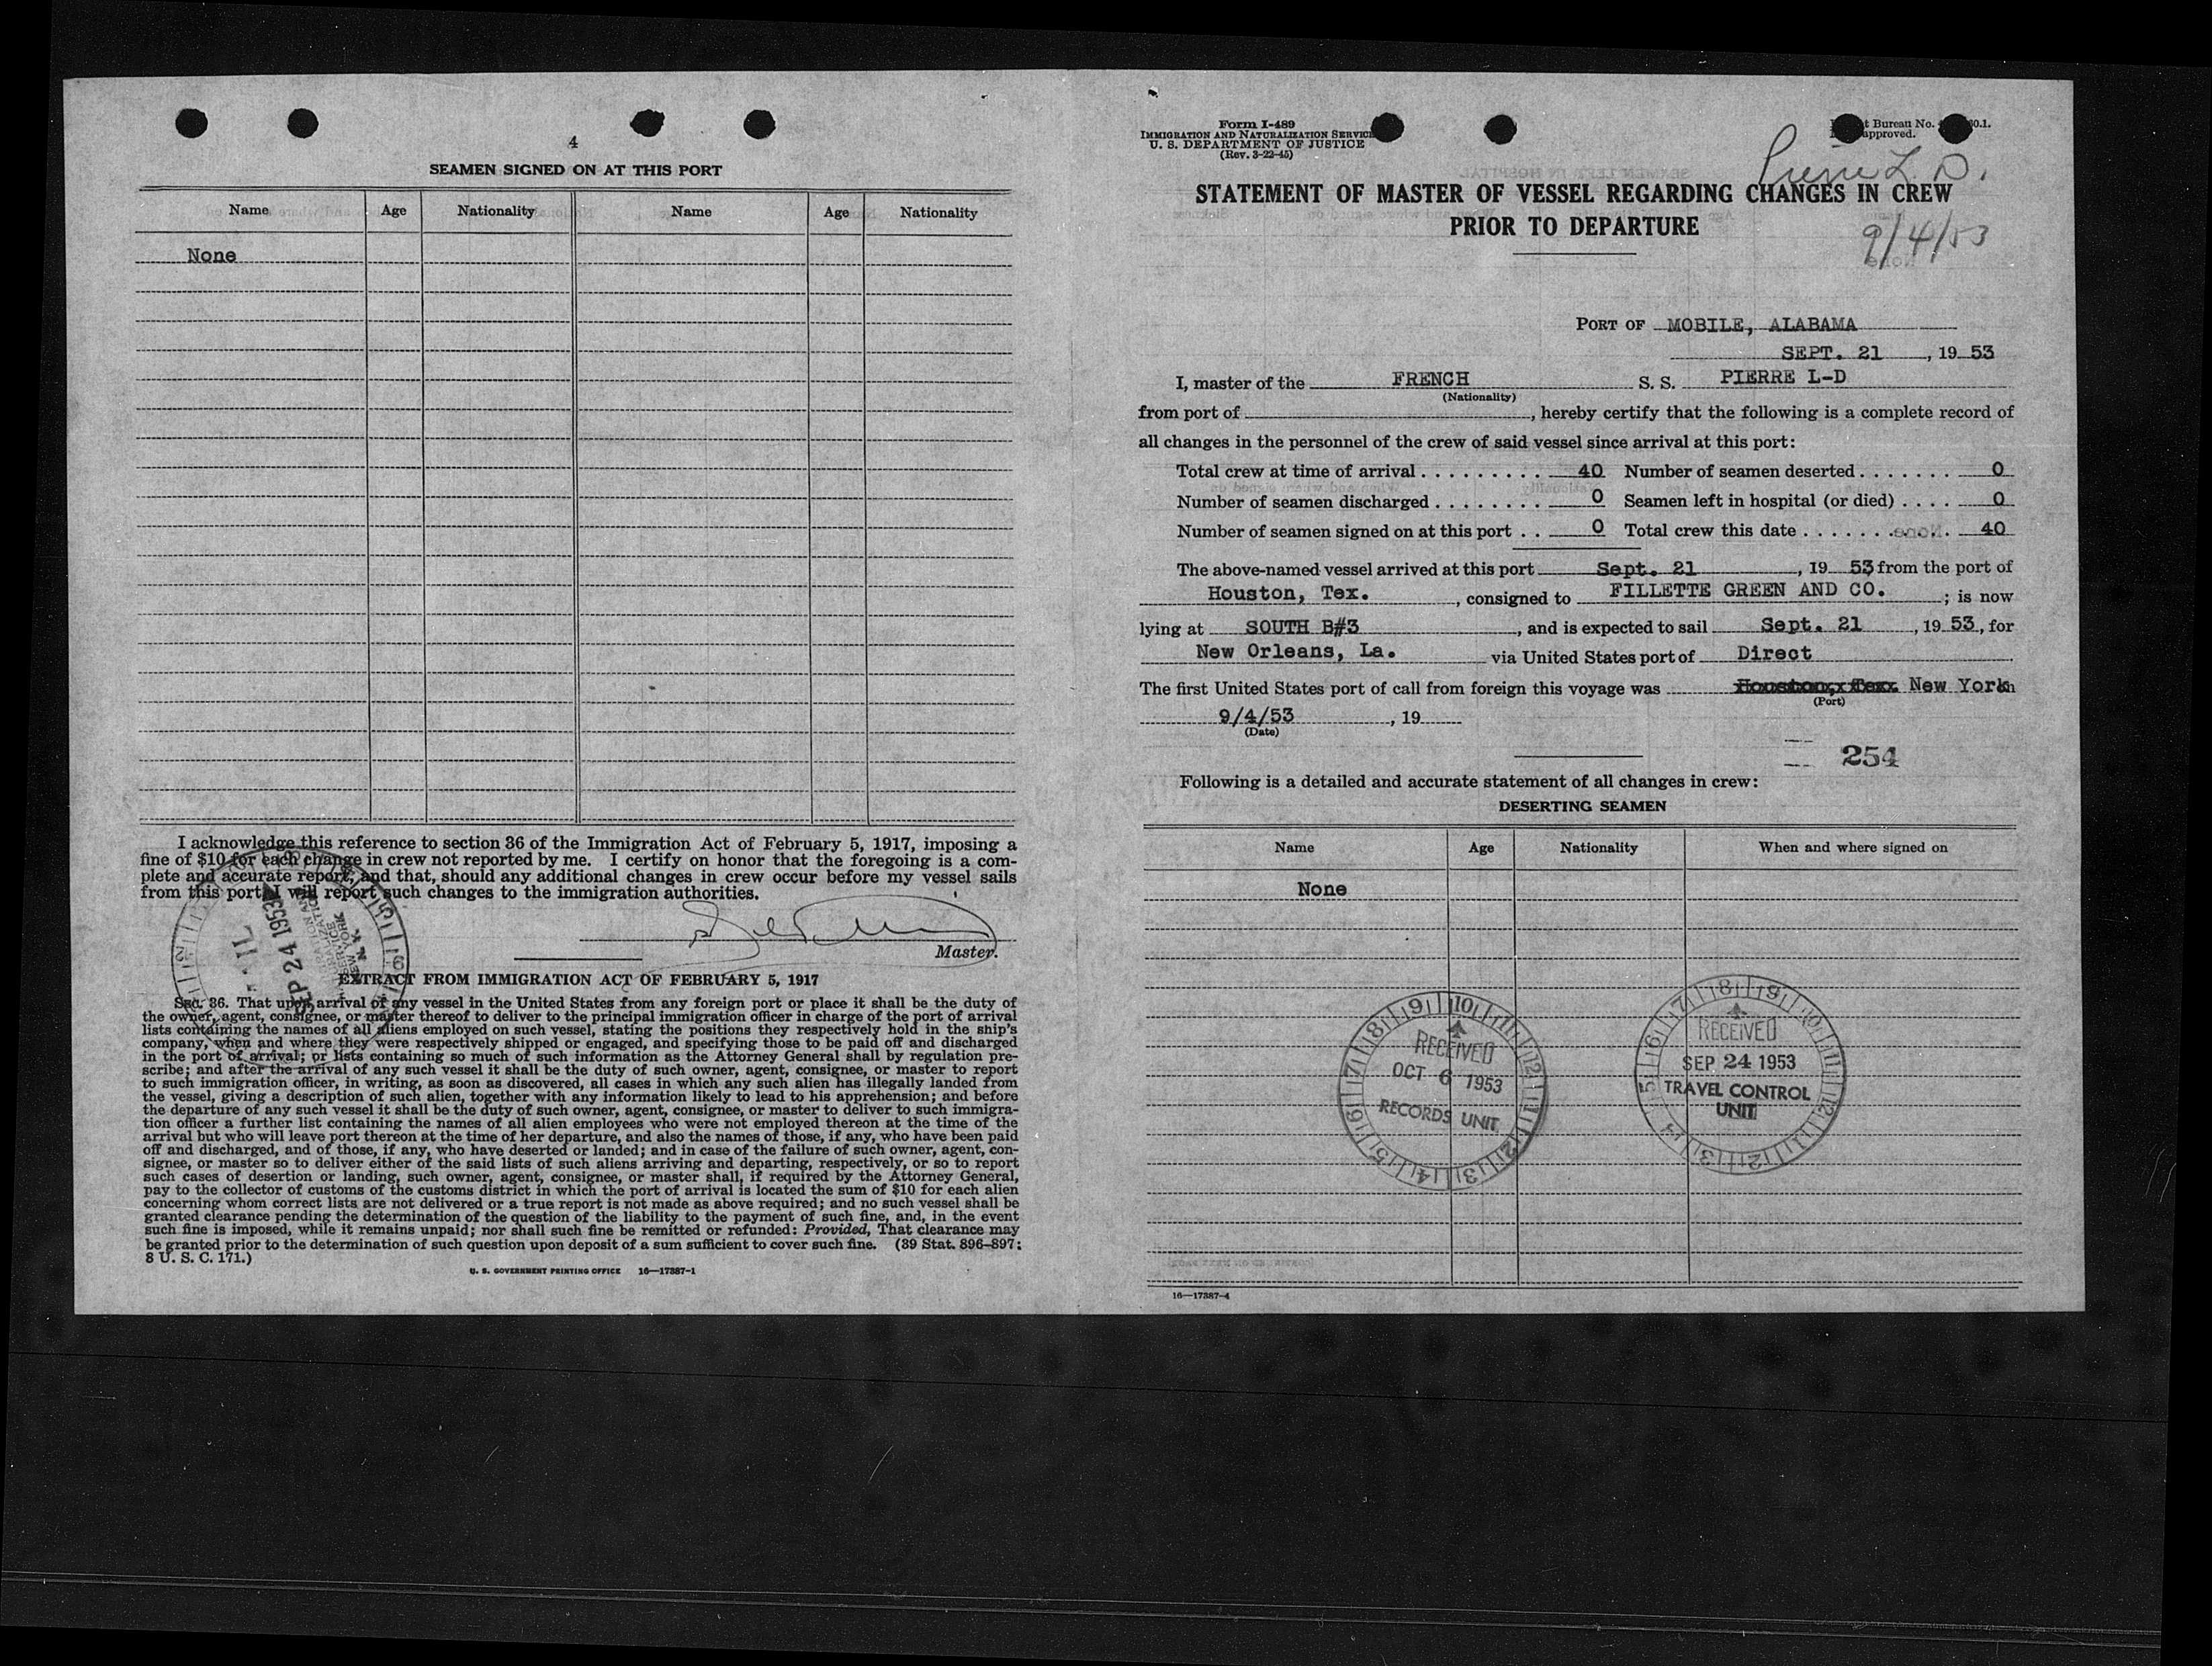 4
SEAMEN SIGNED ON AT THIS PORT
Name Age Nationality Name Age Nationality
None
I acknowledge this reference to section 36 of the Immigration Act of February 5, 1917, imposing a
fine of $10 for each change in crew not reported by me. I certify on honor that the foregoing is a com-
plete and accurate report, and that, should any additional changes in crew occur before my vessel sails
from this port, I will report such changes to the immigration authorities.
Master.
SEP 24 1953
NEW YORK
EXTRACT FROM IMMIGRATION ACT OF FEBRUARY 5, 1917
SEC. 36. That upon arrival of any vessel in the United States from any foreign port or place it shall be the duty of
the owner, agent, consignee, or master thereof to deliver to the principal immigration officer in charge of the port of arrival
lists containing the names of all aliens employed on such vessel, stating the positions they respectively hold in the ship's
company, when and where they were respectively shipped or engaged, and specifying those to be paid off and discharged
in the port of arrival; or lists containing so much of such information as the Attorney General shall by regulation pre-
scribe; and after the arrival of any such vessel it shall be the duty of such owner, agent, consignee, or master to report
to such immigration officer, in writing, as soon as discovered, all cases in which any such alien has illegally landed from
the vessel, giving a description of such alien, together with any information likely to lead to his apprehension; and before
the departure of any such vessel it shall be the duty of such owner, agent, consignee, or master to deliver to such immigra-
tion officer a further list containing the names of all alien employees who were not employed thereon at the time of the
arrival but who will leave port thereon at the time of her departure, and also the names of those, if any, who have been paid
off and discharged, and of those, if any, who have deserted or landed; and in case of the failure of such owner, agent, con-
signee, or master so to deliver either of the said lists of such aliens arriving and departing, respectively, or so to report
such cases of desertion or landing, such owner, agent, consignee, or master shall, if required by the Attorney General,
pay to the collector of customs of the customs district in which the port of arrival is located the sum of $10 for each alien
concerning whom correct lists are not delivered or a true report is not made as above required; and no such vessel shall be
granted clearance pending the determination of the question of the liability to the payment of such fine, and, in the event
such fine is imposed, while it remains unpaid; nor shall such fine be remitted or refunded: Provided, That clearance may
be granted prior to the determination of such question upon deposit of a sum sufficient to cover such fine. (39 Stat. 896–897;
8 U. S. C. 171.)
U. S. GOVERNMENT PRINTING OFFICE 16—17387-1
Form I-489
IMMIGRATION AND NATURALIZATION SERVICE
U. S. DEPARTMENT OF JUSTICE
(Rev. 3-22-45)
Bureau No.
approved.
Pierre L. D.
STATEMENT OF MASTER OF VESSEL REGARDING CHANGES IN CREW
PRIOR TO DEPARTURE
9/4/53
PORT OF MOBILE, ALABAMA
SEPT. 21, 19 53
I, master of the FRENCH S. S. PIERRE L-D
(Nationality)
from port of , hereby certify that the following is a complete record of
all changes in the personnel of the crew of said vessel since arrival at this port:
Total crew at time of arrival . . . . . . . . . 40 Number of seamen deserted . . . . . . . 0
Number of seamen discharged . . . . . . . . 0 Seamen left in hospital (or died) . . . . 0
Number of seamen signed on at this port . . 0 Total crew this date . . . . . . . . . . . 40
The above-named vessel arrived at this port Sept. 21, 19 53 from the port of
Houston, Tex., consigned to FILLETTE GREEN AND CO.; is now
lying at SOUTH B#3, and is expected to sail Sept. 21, 19 53, for
New Orleans, La. via United States port of Direct
The first United States port of call from foreign this voyage was Houston, Tex. New York on
(Port)
9/4/53, 19
(Date)
254
Following is a detailed and accurate statement of all changes in crew:
DESERTING SEAMEN
Name Age Nationality When and where signed on
None
RECEIVED
OCT 6 1953
RECORDS UNIT
RECEIVED
SEP 24 1953
TRAVEL CONTROL
UNIT
16—17387-4